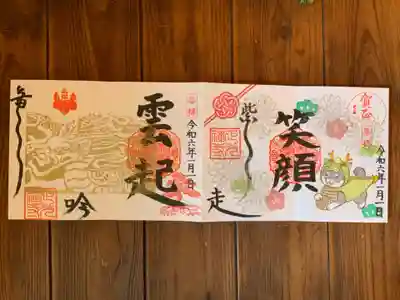 賀正
令和六年一月一日
笑顔
柴走
奉拝
令和六年一月一日
雲起
竜吟